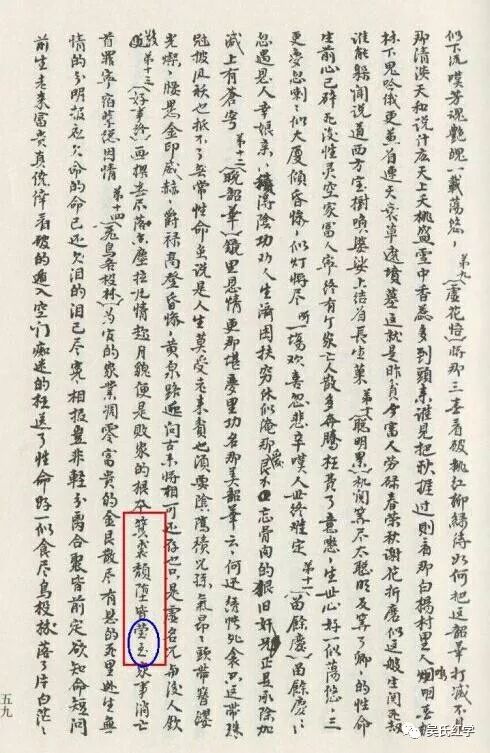 似下流嘆芳魂艷魄一載蕩悠々 第九(虛花悟)將那三春看破桃紅柳綠待如何把這韶華打滅不見
那清淡天和說什庅天上夭桃盛雲中香蕊多到頭來誰見把秋捱過則看那白楊村里人
林下鬼吟哦更兼着連天衰草遮墳墓這就是昨貧今富人勞碌春榮秋謝花折磨似這般生関死刼
誰能躲聞說道西方宝樹喚婆娑上結着長生菓 第十(聰明累)机関算尽太聰明反算了卿々的性命
生前心已碎死後性灵空家富人寧終有个家亡人散各奔騰枉費了意懸々半世心好一似蕩悠々三
更夢忽喇々似大厦傾昏慘々似灯將尽呀一場欢喜忽悲辛嘆人世終难定 第十一(留餘慶)留餘慶々々
忽遇恩人幸娘亲々積得陰功劝人生濟困扶穷休似俺那愛艮忘骨肉的狠旧奸兄正是乘除加
減上有蒼穹 第十二(晚韶華)鏡里恩情更那堪夢里功名那美韶華去何迅綉只這带珠
冠披凤袄也抵不了無常性命虽說是人生莫受老來貧也須要陰隲積児孫氣昂々頭带簪纓
光燦々腰悬金印威赫々爵禄高登昏慘々黄泉路近问古來將相可还存也只是虛名児与後人欽
敬 第十三(好事終)画樑春尽落香塵擅風情趁月貌便是敗家的根本箕裘頹墮皆螢玉家事消亡
首罪寧宿孽總因情 第十四(飛鳥各投林)為官的家業凋零富貴的金艮散尽有恩的死里逃生無
情的分明報应欠命的命已还欠泪的泪已尽寃々相报豈非輕分離合聚皆前定欲知命短问
前生老來富貴真僥倖看破的遁入空门痴迷的枉送了性命好一似食尽鳥投林落了片白茫々
五九
吴氏红学